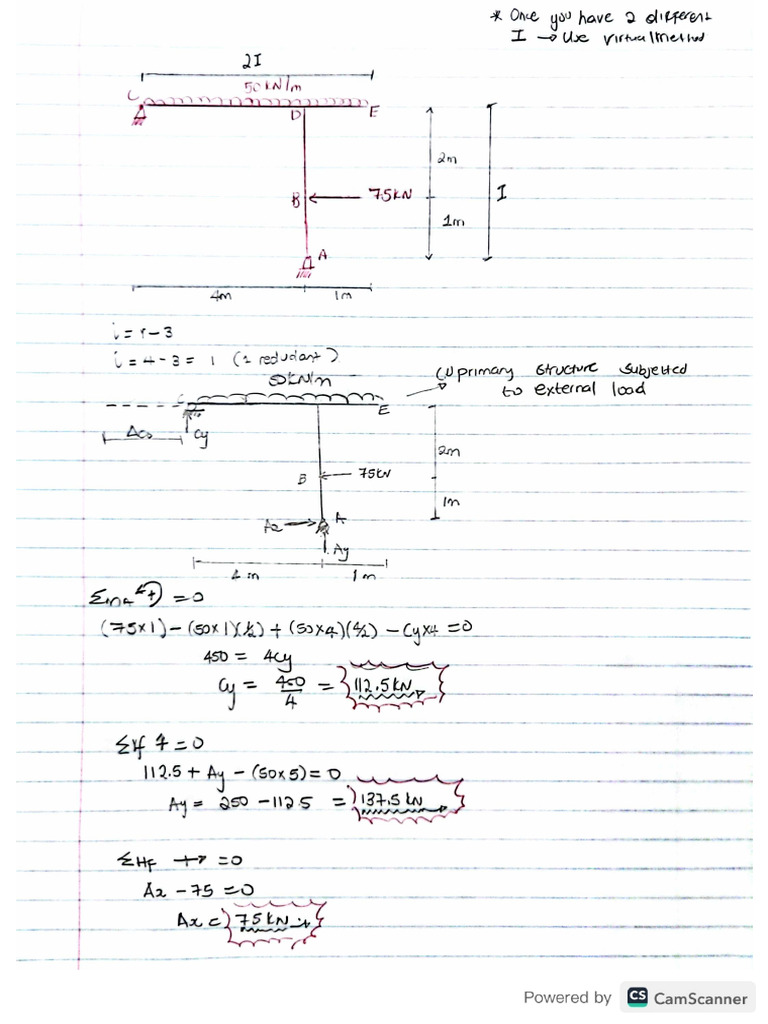 * Once you have 2 different
I → Use virtual method
2I
50 kN/m
C
D
E
2m
B
75KN
I
1m
A
4m
1m
i = r - 3
i = 4 - 3 = 1 (1 redudant)
50KN/m
(1) primary structure subjected
to external load
C
E
Cy
2m
B
75KN
1m
Ax
A
Ay
4 m
1m
= 0
(75×1) - (50×1)(1/2) + (50×4)(4/2) - Cy×4 = 0
450 = 4Cy
Cy = 450/4 = 112.5KN
ΣVf ↑ = 0
112.5 + Ay - (50×5) = 0
Ay = 250 - 112.5 = 137.5 KN
ΣHF → = 0
Ax - 75 = 0
Ax = 75KN
Powered by CS CamScanner